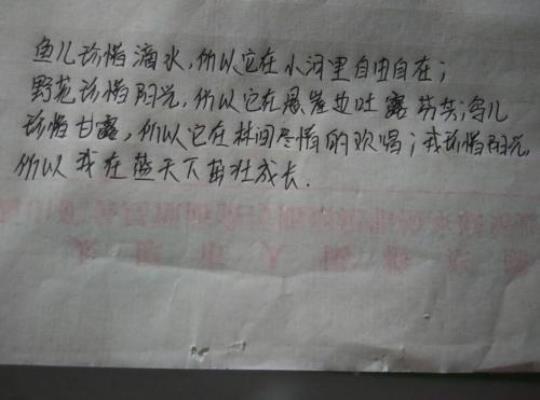 鱼儿珍惜滴水，所以它在小河里自由自在；
野花珍惜阳光，所以它在悬崖边吐露芬芳；鸟儿
珍惜甘露，所以它在林间尽情的欢唱；我珍惜阳光，
所以我在蓝天下茁壮成长．